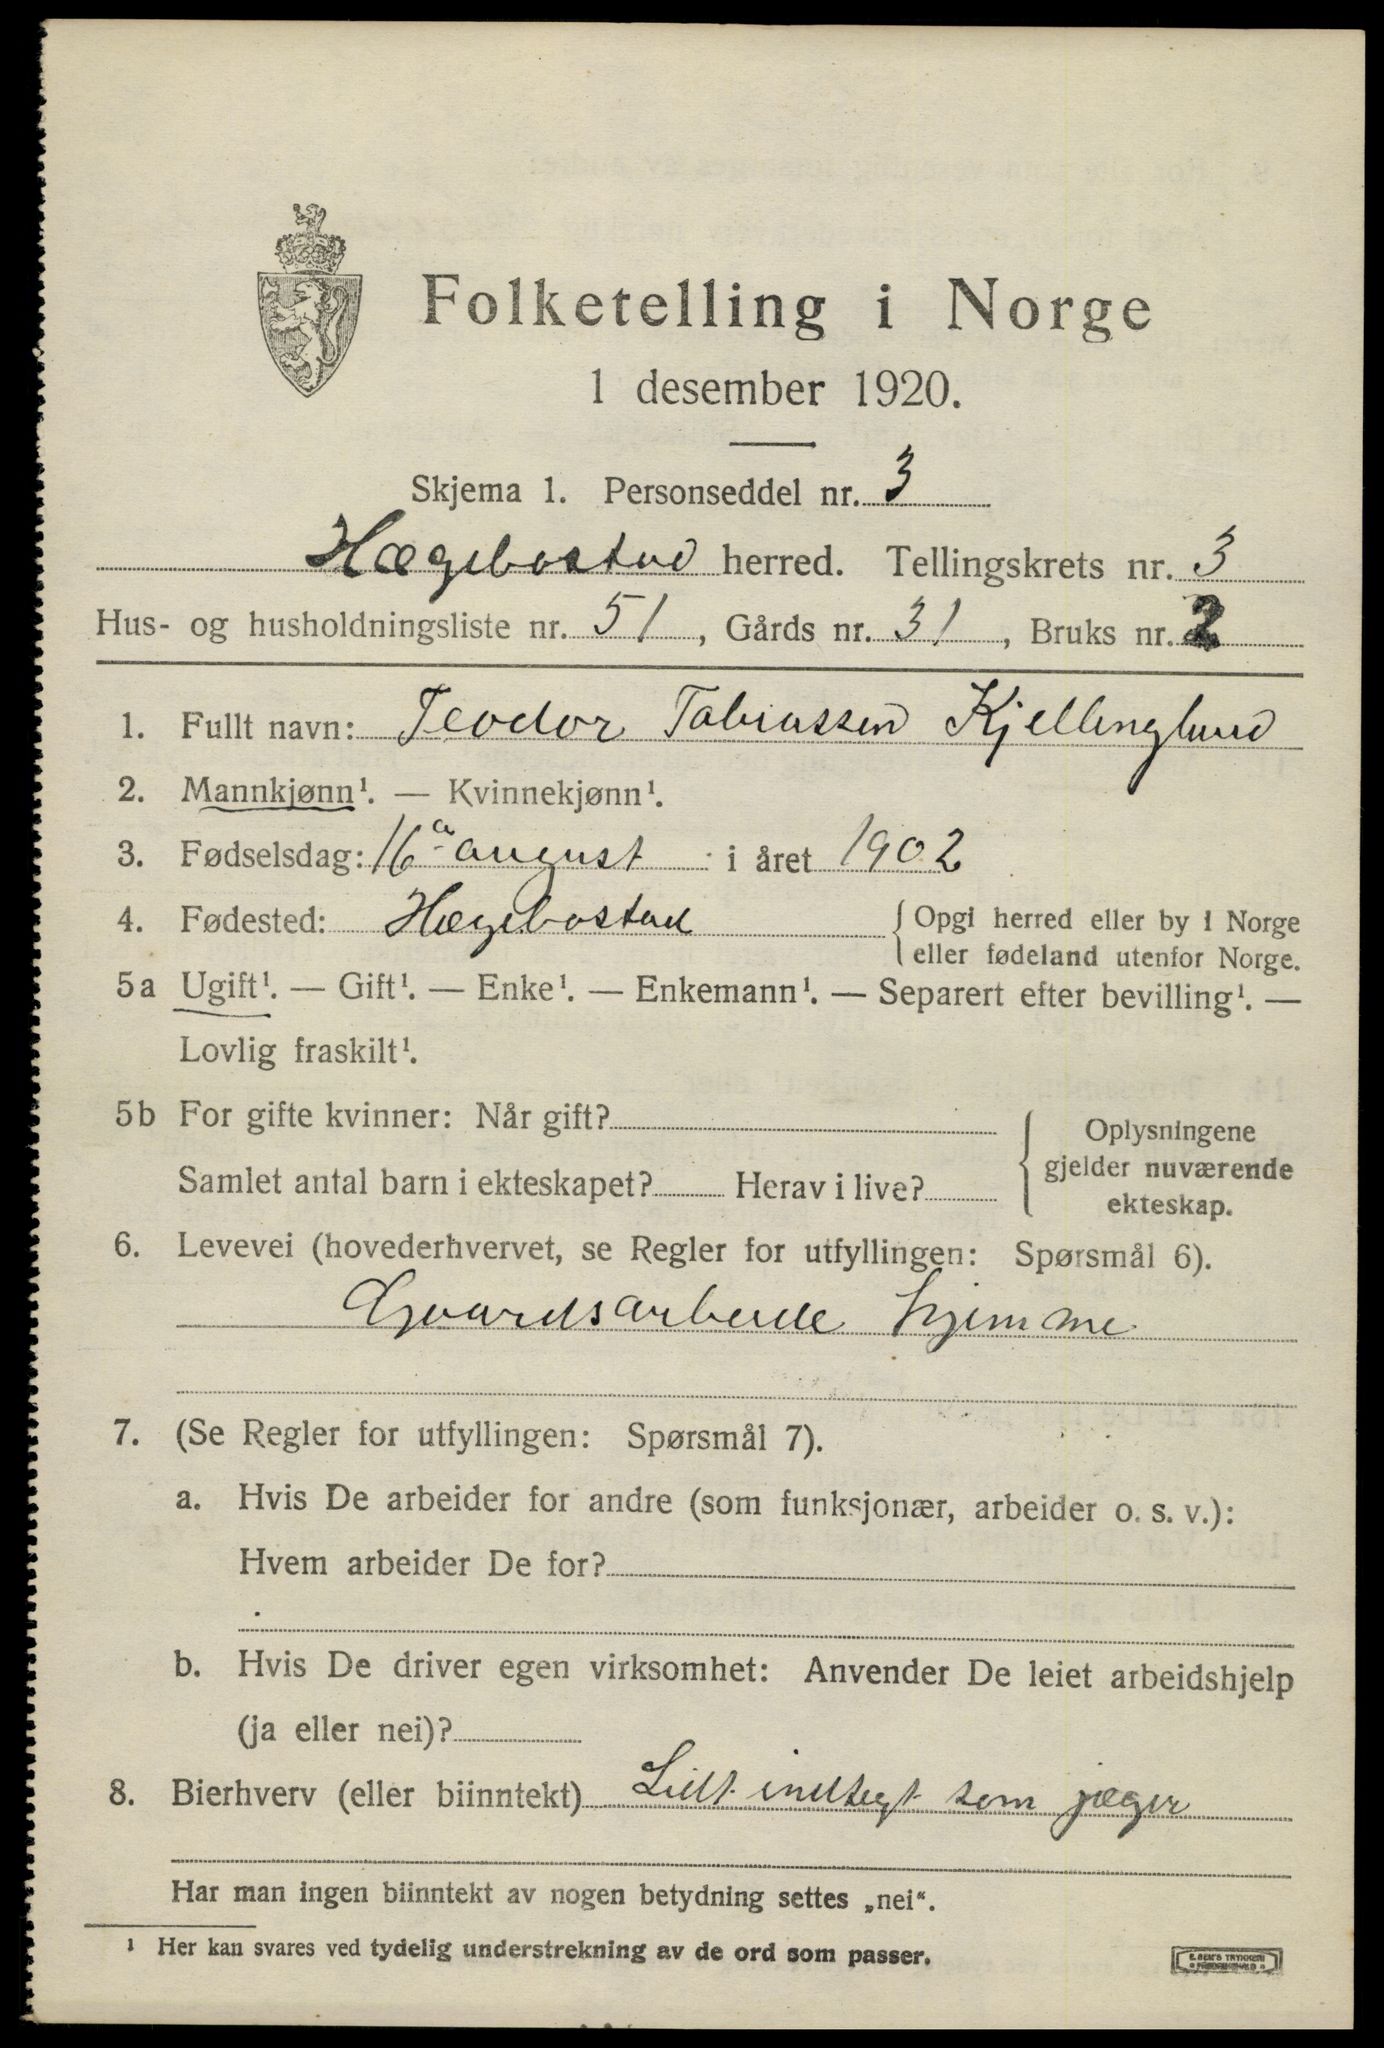 Folketelling i Norge
1 desember 1920.
Skjema 1. Personseddel nr. 3
Hægebostad herred. Tellingskrets nr. 3
Hus- og husholdningsliste nr. 51, Gårds nr. 31, Bruks nr. 2
1. Fullt navn: Teodor Tobiassen Kjellinglund
2. Mannkjønn¹. — Kvinnekjønn¹.
3. Fødselsdag: 16 august i året 1902
4. Fødested: Hægebostad { Opgi herred eller by i Norge
eller fødeland utenfor Norge.
5a Ugift¹. — Gift¹. — Enke¹. — Enkemann¹. — Separert efter bevilling¹. —
Lovlig fraskilt¹.
5b For gifte kvinner: Når gift? { Oplysningene
gjelder nuværende
Samlet antal barn i ekteskapet? Herav i live? ekteskap.
6. Levevei (hovederhvervet, se Regler for utfyllingen: Spørsmål 6).
Gaardsarbeide hjemme
7. (Se Regler for utfyllingen: Spørsmål 7).
a. Hvis De arbeider for andre (som funksjonær, arbeider o. s. v.):
Hvem arbeider De for?
b. Hvis De driver egen virksomhet: Anvender De leiet arbeidshjelp
(ja eller nei)?
8. Bierhverv (eller biinntekt) Lidt indtegt som jæger
Har man ingen biinntekt av nogen betydning settes „nei“.
¹ Her kan svares ved tydelig understrekning av de ord som passer.